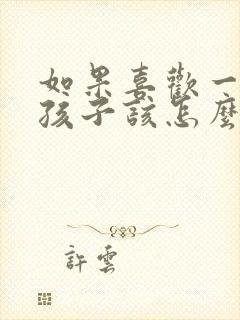 如果喜歡一
孩子該怎麼
許雲